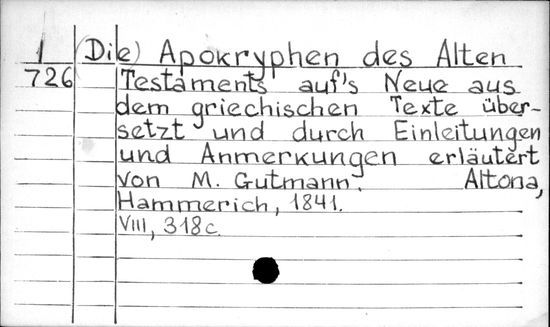 I (Die) Apokryphen des Alten
726 Testaments auf's Neue aus
dem griechischen Texte über-
setzt und durch Einleitungen
und Anmerkungen erläutert
von M. Gutmann. Altona,
Hammerich, 1841.
VIII, 318 c.